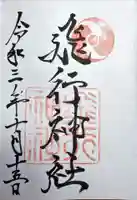 飛行神社
令和三年十月十五日